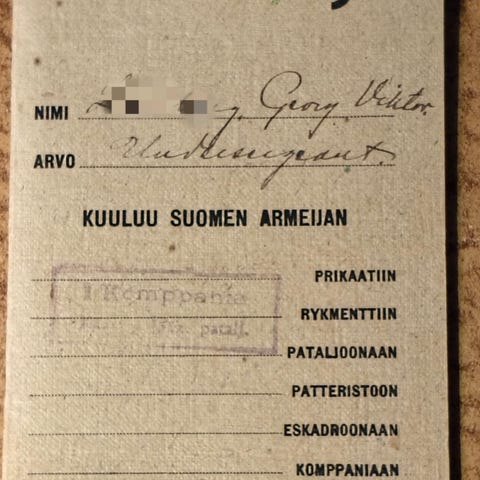 NIMI Georg Viktor.
ARVO Undersergeant.
KUULUU SUOMEN ARMEIJAN
PRIKAATIIN
I Komppania
RYKMENTTIIN
patalj.
PATALJOONAAN
PATTERISTOON
ESKADROONAAN
KOMPPANIAAN